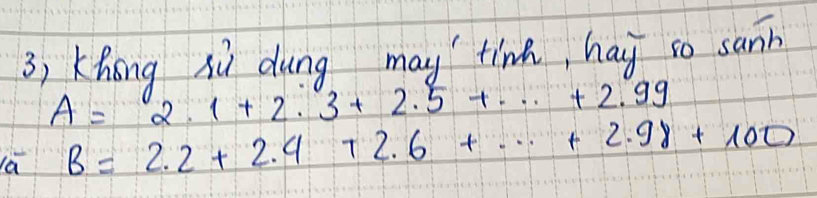 3) Không sử dụng máy tính, hãy so sánh
A = 2.1 + 2.3 + 2.5 + ... + 2.99
và B = 2.2 + 2.4 + 2.6 + ... + 2.98 + 100